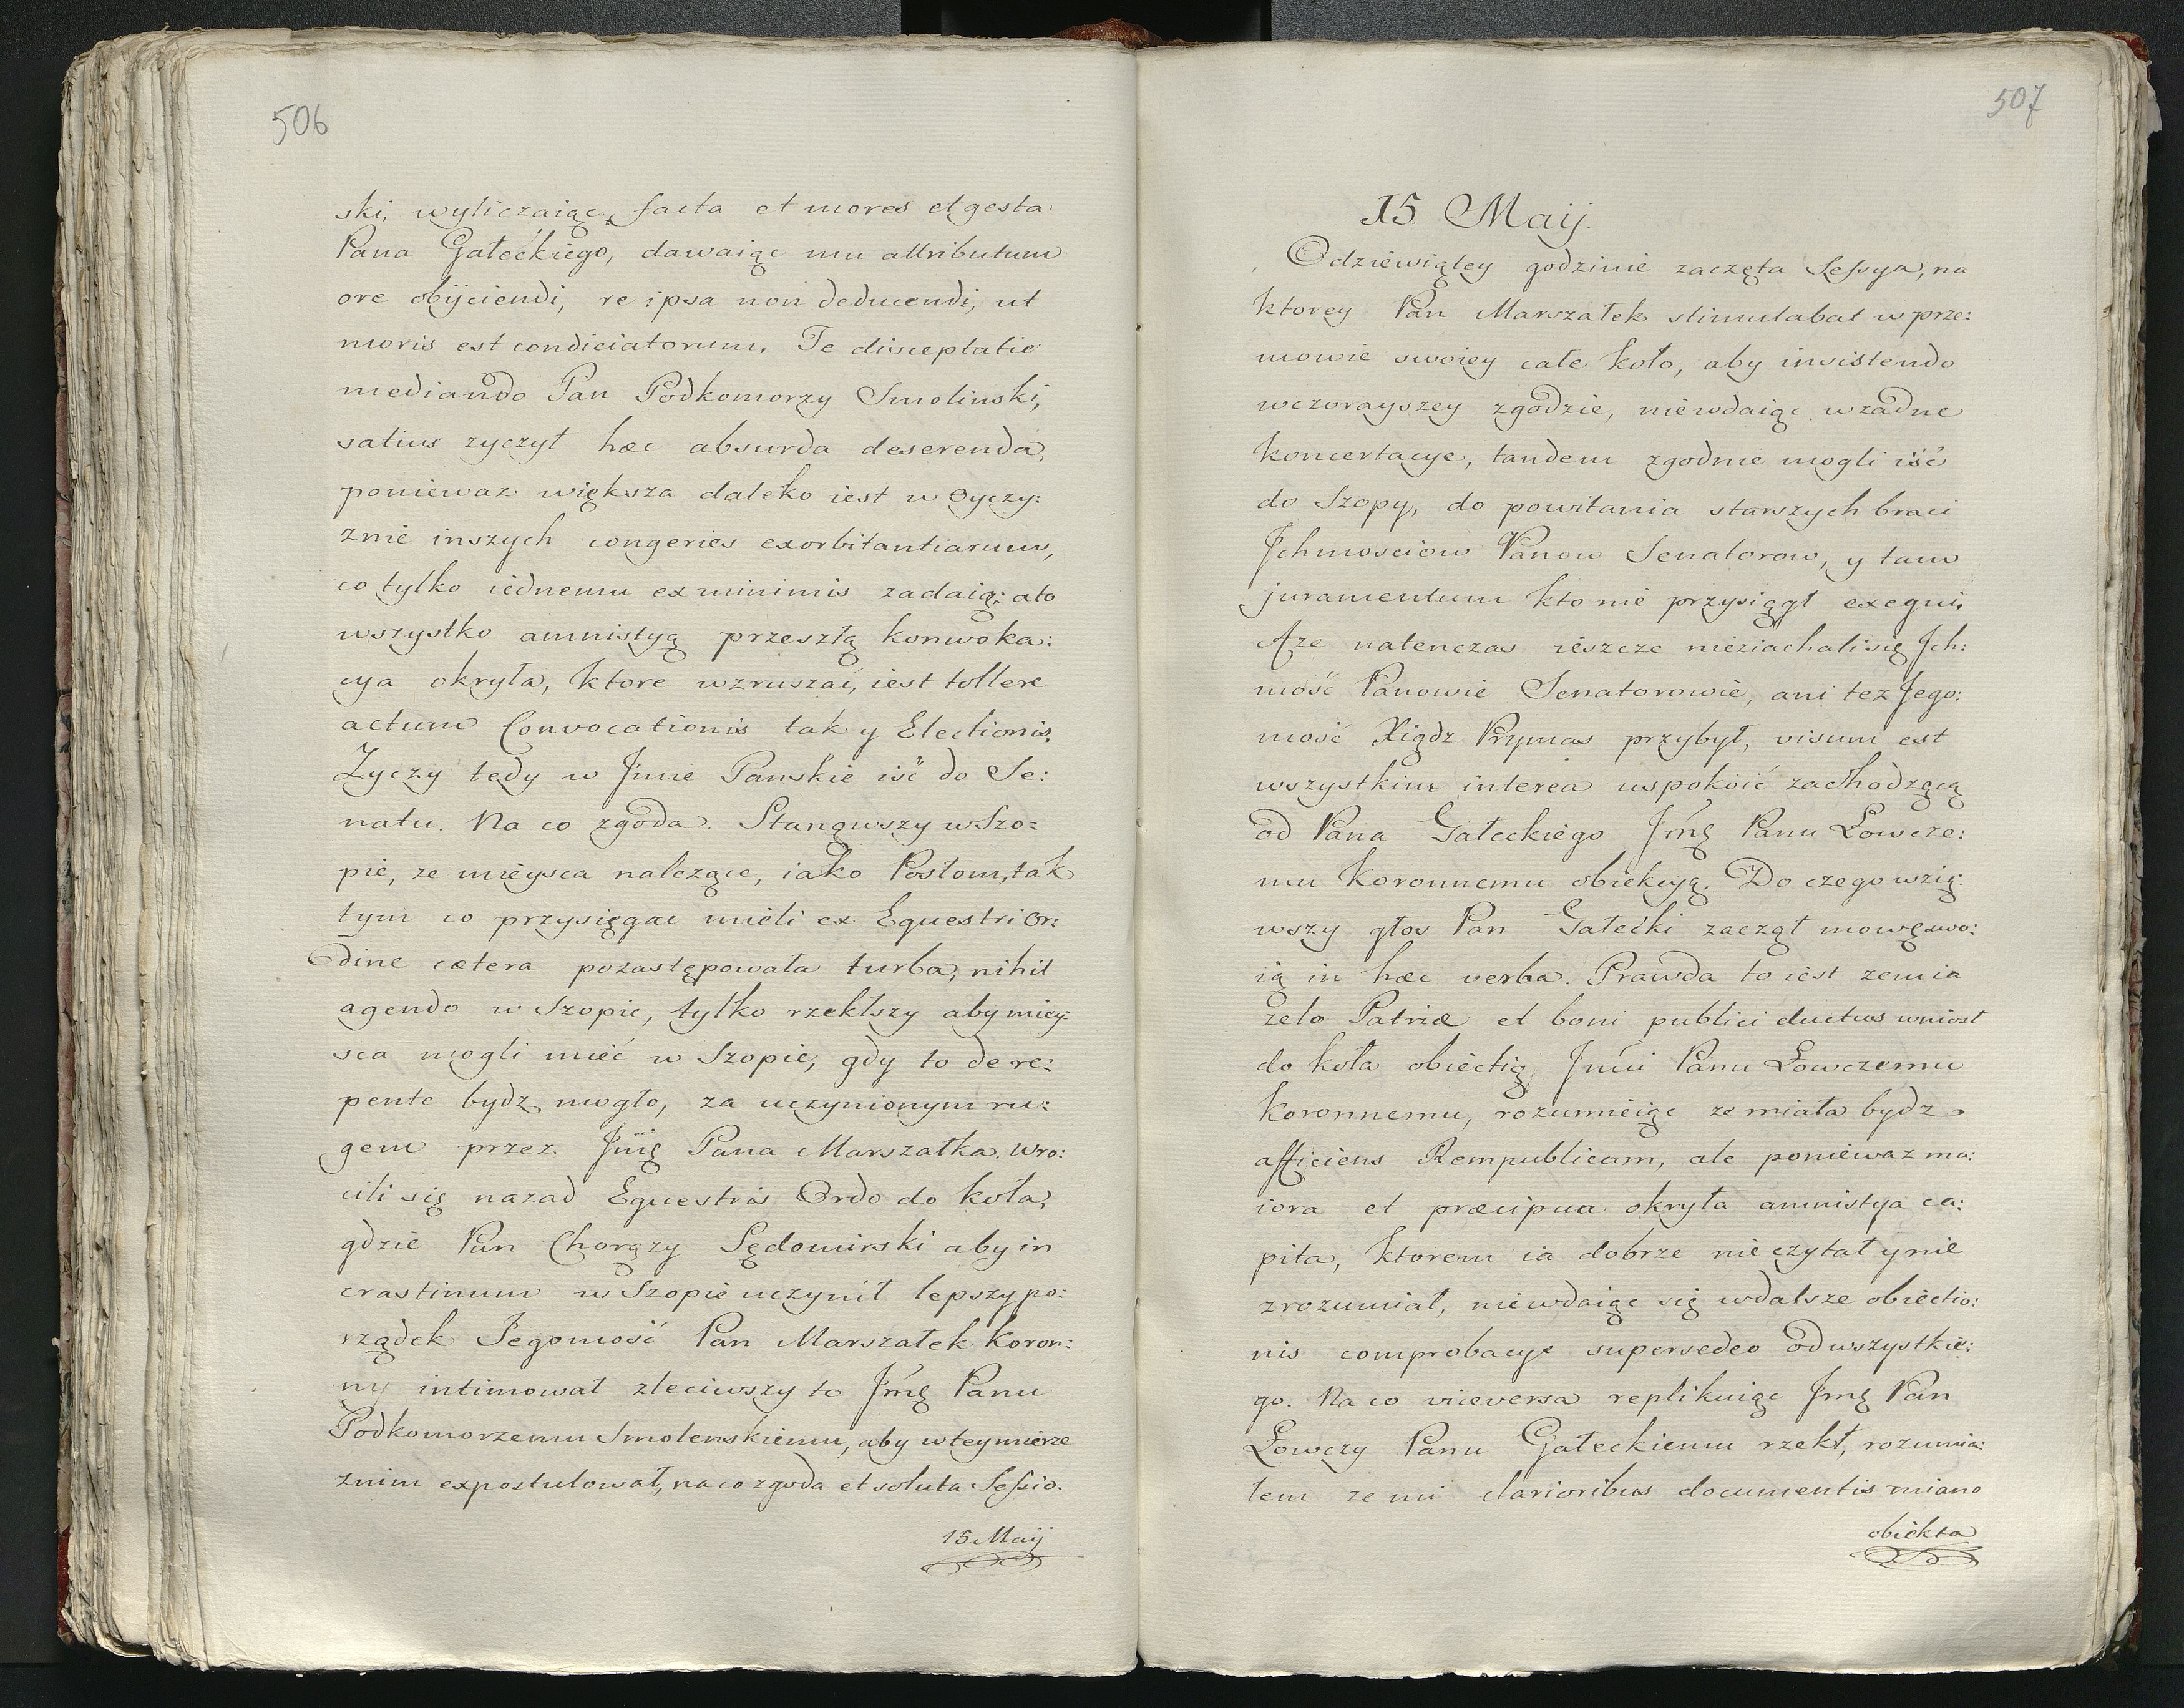 506
ski, wyliczaiąc, facta et mores et gesta
Pana Gałećkiego, dawaiąc mu attributum
ore obijciendi, re ipsa non deducendi, ut
moris est condiciatorum. Te disceptatie
mediando Pan Podkomorzy Smolinski,
satius zyczył hæc absurda deserenda,
poniewaz większa daleko iest w Oyczy:
znie inszych congeries exorbitantiarum,
co tylko iednemu ex minimis zadaią; ato
wszystko amnistyą przeszłą konwoka:
cya okryła, ktore wzruszać, iest tollere
actum Convocationis tak y Electionis.
Zyczy tędy w Jmie Pańskie iść do Se:
natu. Na co zgoda. Stanąwszy w Szo:
pie, ze mieysca nalezące, iako Posłom, tak
tym co przysięgac mieli ex Equestri Or:
dine cætera pozastępowała turba, nihil
agendo w Szopie, tylko rzekłszy aby miey:
sca mogli mieć w Szopie, gdy to de re:
pente bydz mogło, za uczynionym ru:
gem przez Jmę Pana Marszałka. Wro:
cili się nazad Equestris Ordo do koła,
gdzie Pan Chorązy Sędomirski aby in
crastinum w Szopie uczynił lepszy po:
rządek Jegomość Pan Marszałek Koron:
ny intimował zleciwszy to Jmę Panu
Podkomorzemu Smolenskiemu, aby wteymierze
znim expostulował, na co zgoda et soluta Sessio.
15 Maij
507
15 Maij.
Odziewiątey godzinie zaczęta Sessya, na
ktorey Pan Marszałek stimulabat w prze:
mowie swoiey całe koło, aby insistendo
wczorayszey zgodzie, niewdaiąc wzadne
koncertacye, tandem zgodnie mogli iść
do Szopy, do powitania starszych braci
Ichmosciow Panow Senatorow, y tam
juramentum kto nie przysiągł exequi.
Aze natenczas ieszcze nieziachali się Ich:
mość Panowie Senatorowie, ani tez Jego:
mość Xiądz Prymas przybył, visum est
wszystkim interea uspokoić zachodzącą
od Pana Gałeckiego Jmę Panu Łowcze:
mu Koronnemu obiekcyą. Do czego wzią:
wszy głos Pan Gałećki zaczął mowę swo:
ią in hæc verba. Prawda to iest zem ia
zelo Patriæ et boni publici ductus wniosł
do koła obiectią Jmći Panu Łowczemu
Koronnemu, rozumieiąc ze miała bydz
afficiens Rempublicam, ale poniewaz ma:
iora et præcipua okryła amnistya ca:
pita, ktorem ia dobrze nie czytał y nie
zrozumiał, niewdaiąc się wdalsze obiectio:
nis comprobacye supersedeo od wszystkie:
go. Na co viceversa replikuiąc Jmę Pan
Łowczy Panu Gałeckiemu rzekł, rozumia:
łem ze mi clarioribus documentis miano
obiekta